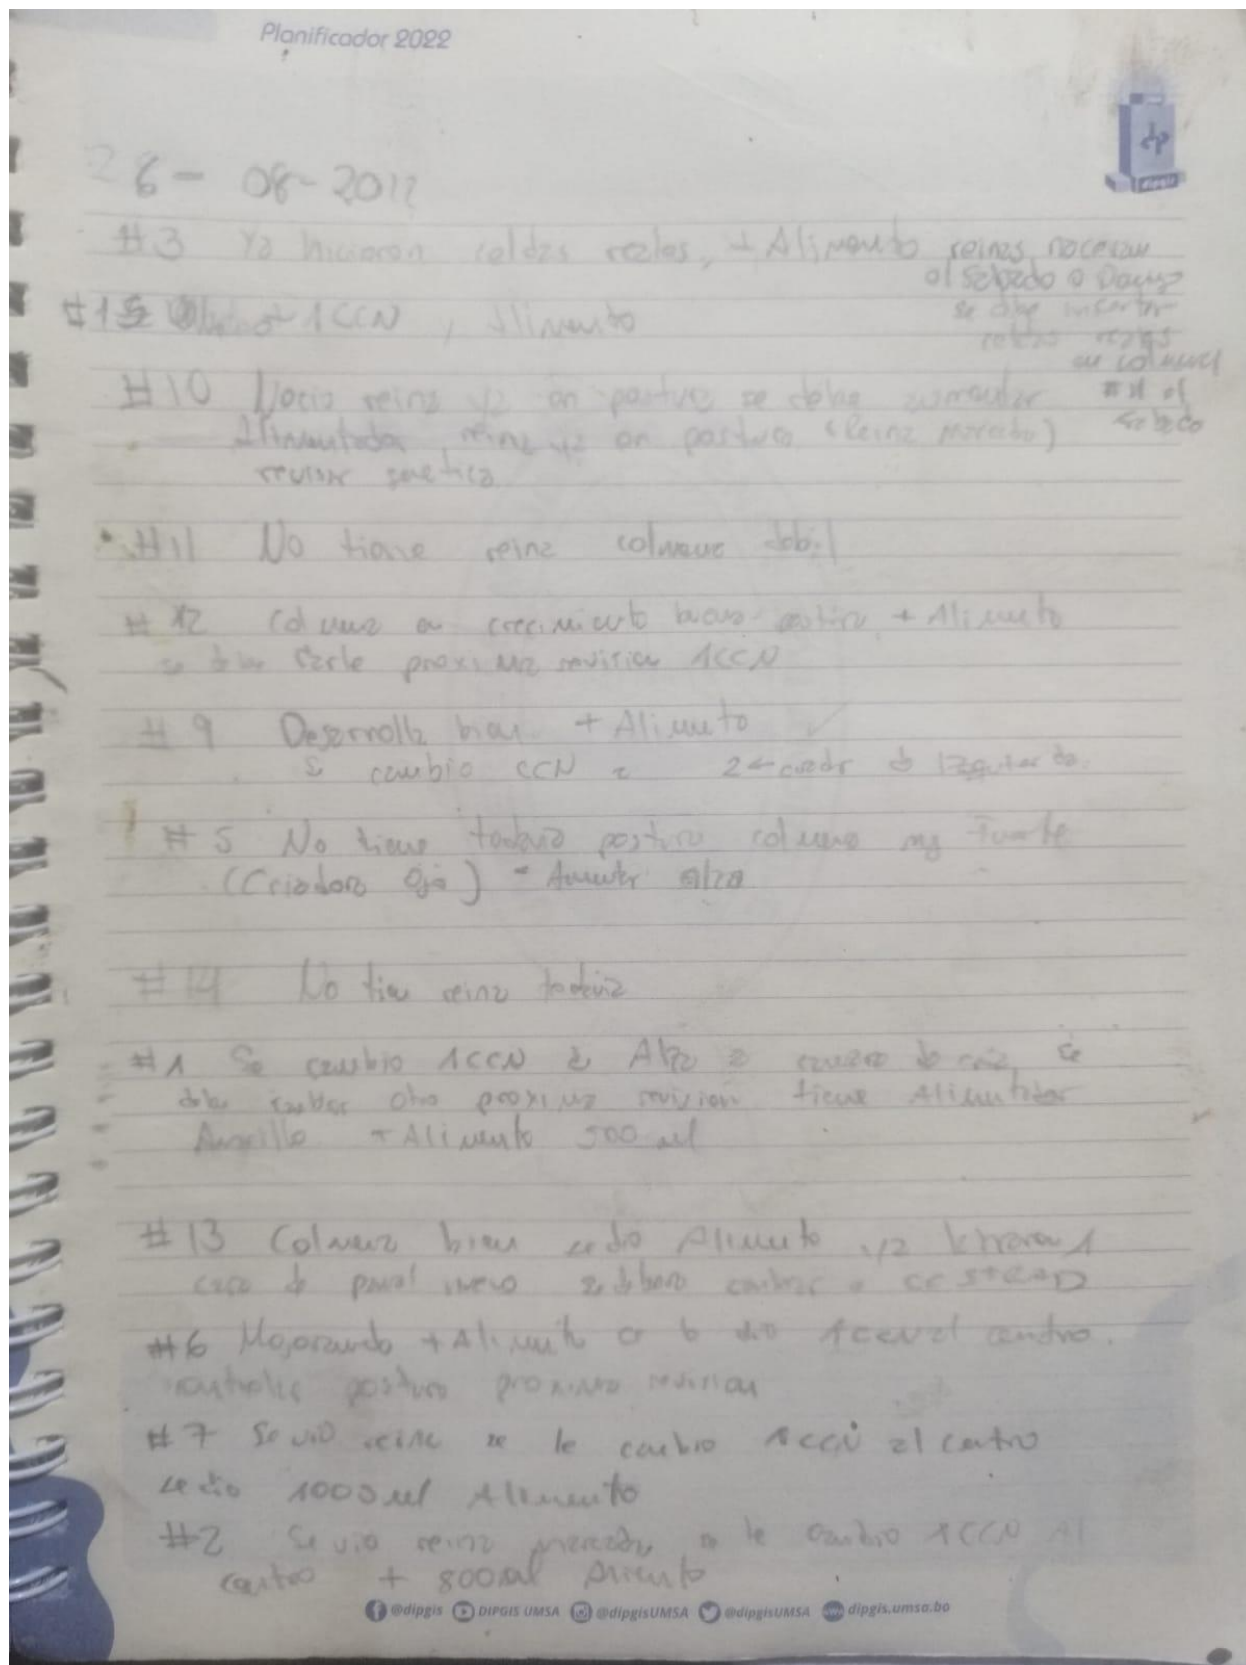 Planificador 2022
26 - 08 - 2022
#3 Ya hicieron celdas reales, + Alimento reinas naceran
el Sabado o
se debe insertar
celdas reales
en colmena
#11 el
sabado
#15 1CCN, Alimento
#10 Nacio reina ya en postura se debe aumentar
Alimentador reina ya en postura (Reina
revisar genetica
#11 No tiene reina colmena debil
#12 Colmena en crecimiento buena postura + Alimento
se debe darle proxima revision 1CCN
#9 Desarrolla bien + Alimento
Se cambio CCN
#5 No tiene todavia postura colmena muy fuerte
(Criadora Ojo) - Aumentar alza
#14 No tiene reina todavia
#1 Se cambio 1CCN Alza a cuadro de Se
debe cambiar otro proxima revision tiene Alimentador
Amarillo + Alimento 500 ml
#13 Colmena bien se dio Alimento ya 1
cara de panal nuevo se debera cambiar
#6 Mejorando + Alimento dio 1CCN al centro.
controlar postura proxima revision
#7 Se vio reina se le cambio 1CCN al centro
se dio 1000 ml Alimento
#2 Se vio reina marcada se le cambio 1CCN Al
centro + 800 ml Alimento
@dipgis DIPGIS UMSA @dipgisUMSA @dipgisUMSA dipgis.umsa.bo
dipgis